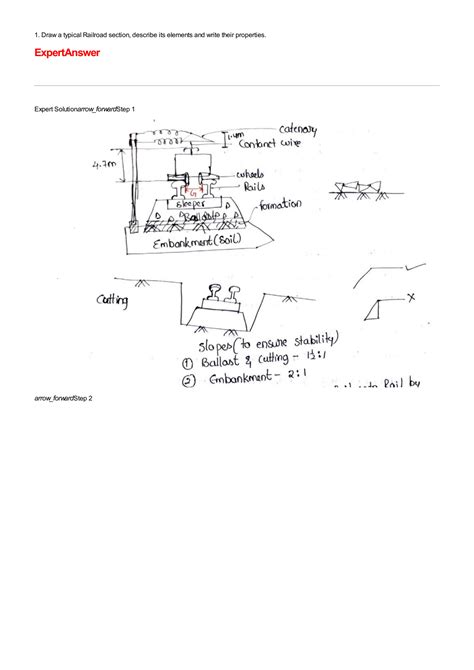 1. Draw a typical Railroad section, describe its elements and write their properties.
ExpertAnswer
Expert Solutionarrow_forwardStep 1
catenary
1.4m
Contanct wire
4.7m
wheels
Rails
G
Sleeper
formation
D D Ballast D D
Embankment (Soil)
Cutting
X
Slopes (to ensure stability)
① Ballast & Cutting - 1½:1
② Embankment - 2:1
Rail by
arrow_forwardStep 2